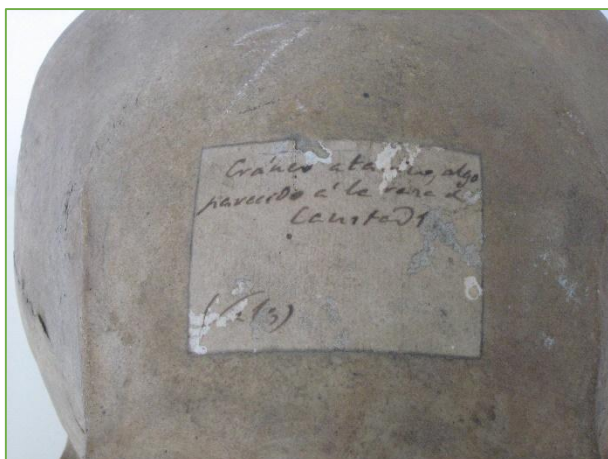 Cráneo atávico, algo
parecido á la raza d
Canstadt